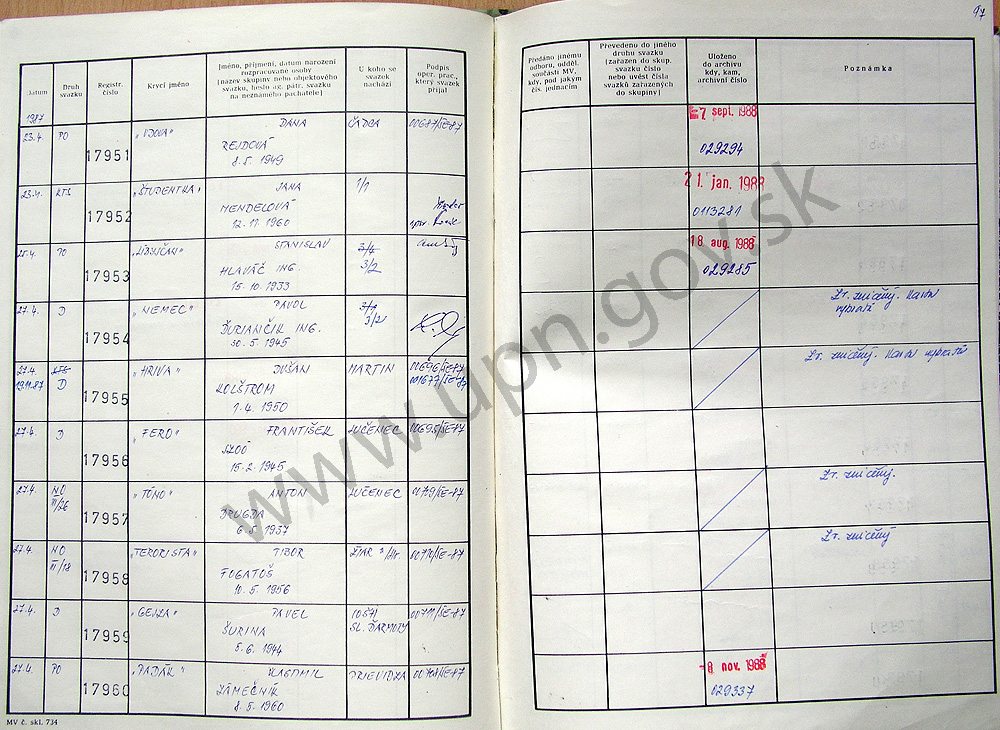 97
Datum
Druh svazku
Registr. číslo
Krycí jméno
Jméno, příjmení, datum narození rozpracované osoby (název skupiny nebo objektového svazku, heslo ag. pátr. svazku na neznámého pachatele)
U koho se svazek nachází
Podpis oper. prac., který svazek přijal
Předáno jinému odboru, odděl. součásti MV, kdy, pod jakým čís. jednacím
Převedeno do jiného druhu svazku (zařazen do skup. svazku číslo nebo uvést čísla svazků zařazených do skupiny)
Uloženo do archivu kdy, kam, archivní číslo
Poznámka
1987
23.4. PO 17951 DANA ČADCA 00687/SE-87 7 sept. 1988
REJDOVÁ 029294
8.5. 1949
KTS 17952 „ŠTUDENTKA" JANA 1/1 21. jan. 1988
MENDELOVÁ 0113281
12.11. 1960
PO 17953 STANISLAV 3/4 18 aug. 1988
HLAVÁČ ING. 3/2 029285
15.10. 1933
27.4. D 17954 „NEMEC" PAVOL 3/1 Zv. zničený.
ĎURIANČIK ING. 3/2
30.5. 1945
27.4. KTS 17955 „HRIVA" DUŠAN MARTIN 00696/SE-87 Zv. zničený.
19.11.87 D KOLŠTROM
1.4. 1950
27.4. D 17956 „FERO" FRANTIŠEK LUČENEC 00695/SE-87
15.2. 1945
27.4. NO 17957 „TÓNO" ANTON LUČENEC 00719/SE-87 Zv. zničený.
II/26 DRUGDA
6.5. 1937
27.4. NO 17958 „TERORISTA" TIBOR ŽIAR n/Hr. 00710/SE-87 Zv. zničený
II/18 FOGATOŠ
10.5. 1956
27.4. D 17959 „GEJZA" PAVEL 00711/SE-87
ŠURINA SL. ĎARMOTY
5.6. 1944
27.4. PO 17960 „PADÁK" VLASTIMIL PRIEVIDZA -8 nov. 1988
ZÁMEČNÍK 029337
8.5. 1960
MV č. skl. 734
www.upn.gov.sk